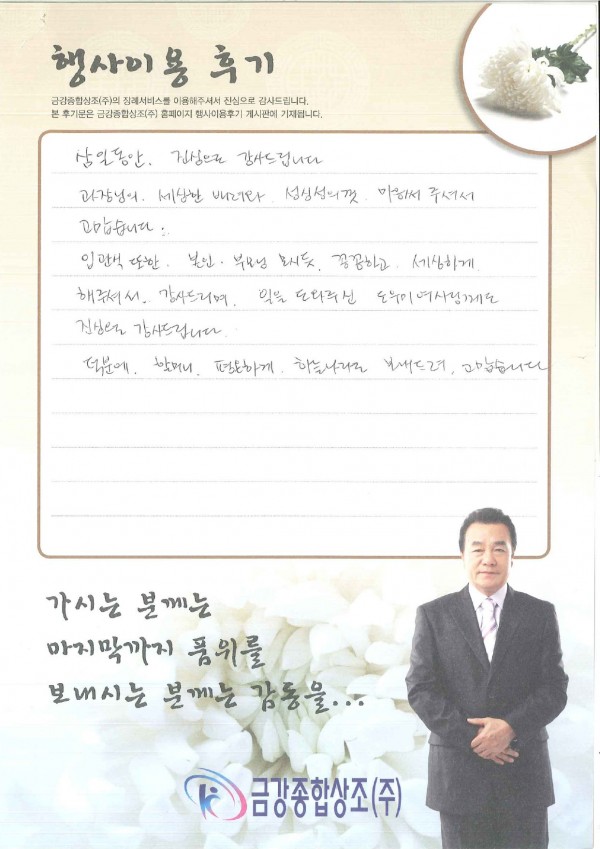 행사이용 후기
금강종합상조(주)의 장례서비스를 이용해주셔서 진심으로 감사드립니다.
본 후기문은 금강종합상조(주) 홈페이지 행사이용후기 게시판에 기재됩니다.
삼일동안, 진심으로 감사드립니다
과장님의, 세심한 배려와, 성심성의껏, 미하서 주셔서
고맙습니다.
입관식 또한, 본인·부모님 모시듯, 꼼꼼하고, 세심하게
해주셔서, 감사드리며, 일을 도와주신 도우미여사님께도
진심으로 감사드립니다.
덕분에, 할머니, 평온하게, 하늘나라로 보내드려, 고맙습니다
가시는 분께는
마지막까지 품위를
보내시는 분께는 감동을...
금강종합상조(주)